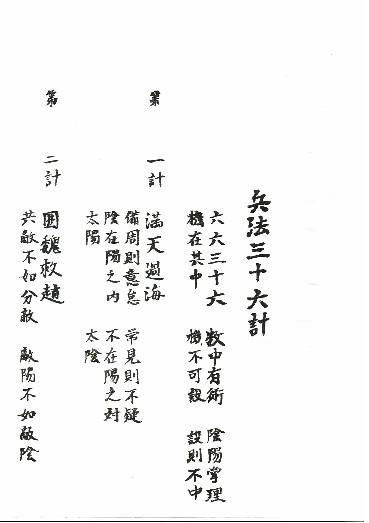 兵法三十六計
六六三十六 數中有術 陰陽掌理
機在其中 機不可設 設則不中
第一計 滿天過海
備周則意怠 常見則不疑
陰在陽之內 不在陽之對
太陽 太陰
第二計 圍魏救趙
共敵不如分敵 敵陽不如敵陰